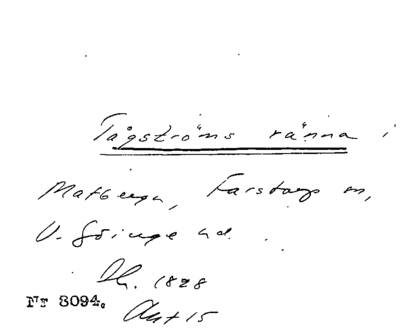 Tågströms ränna i
Matberga, Farstorp sn,
V. Göinge hd.
Dh. 1828
Nr 3094.
Akt 15